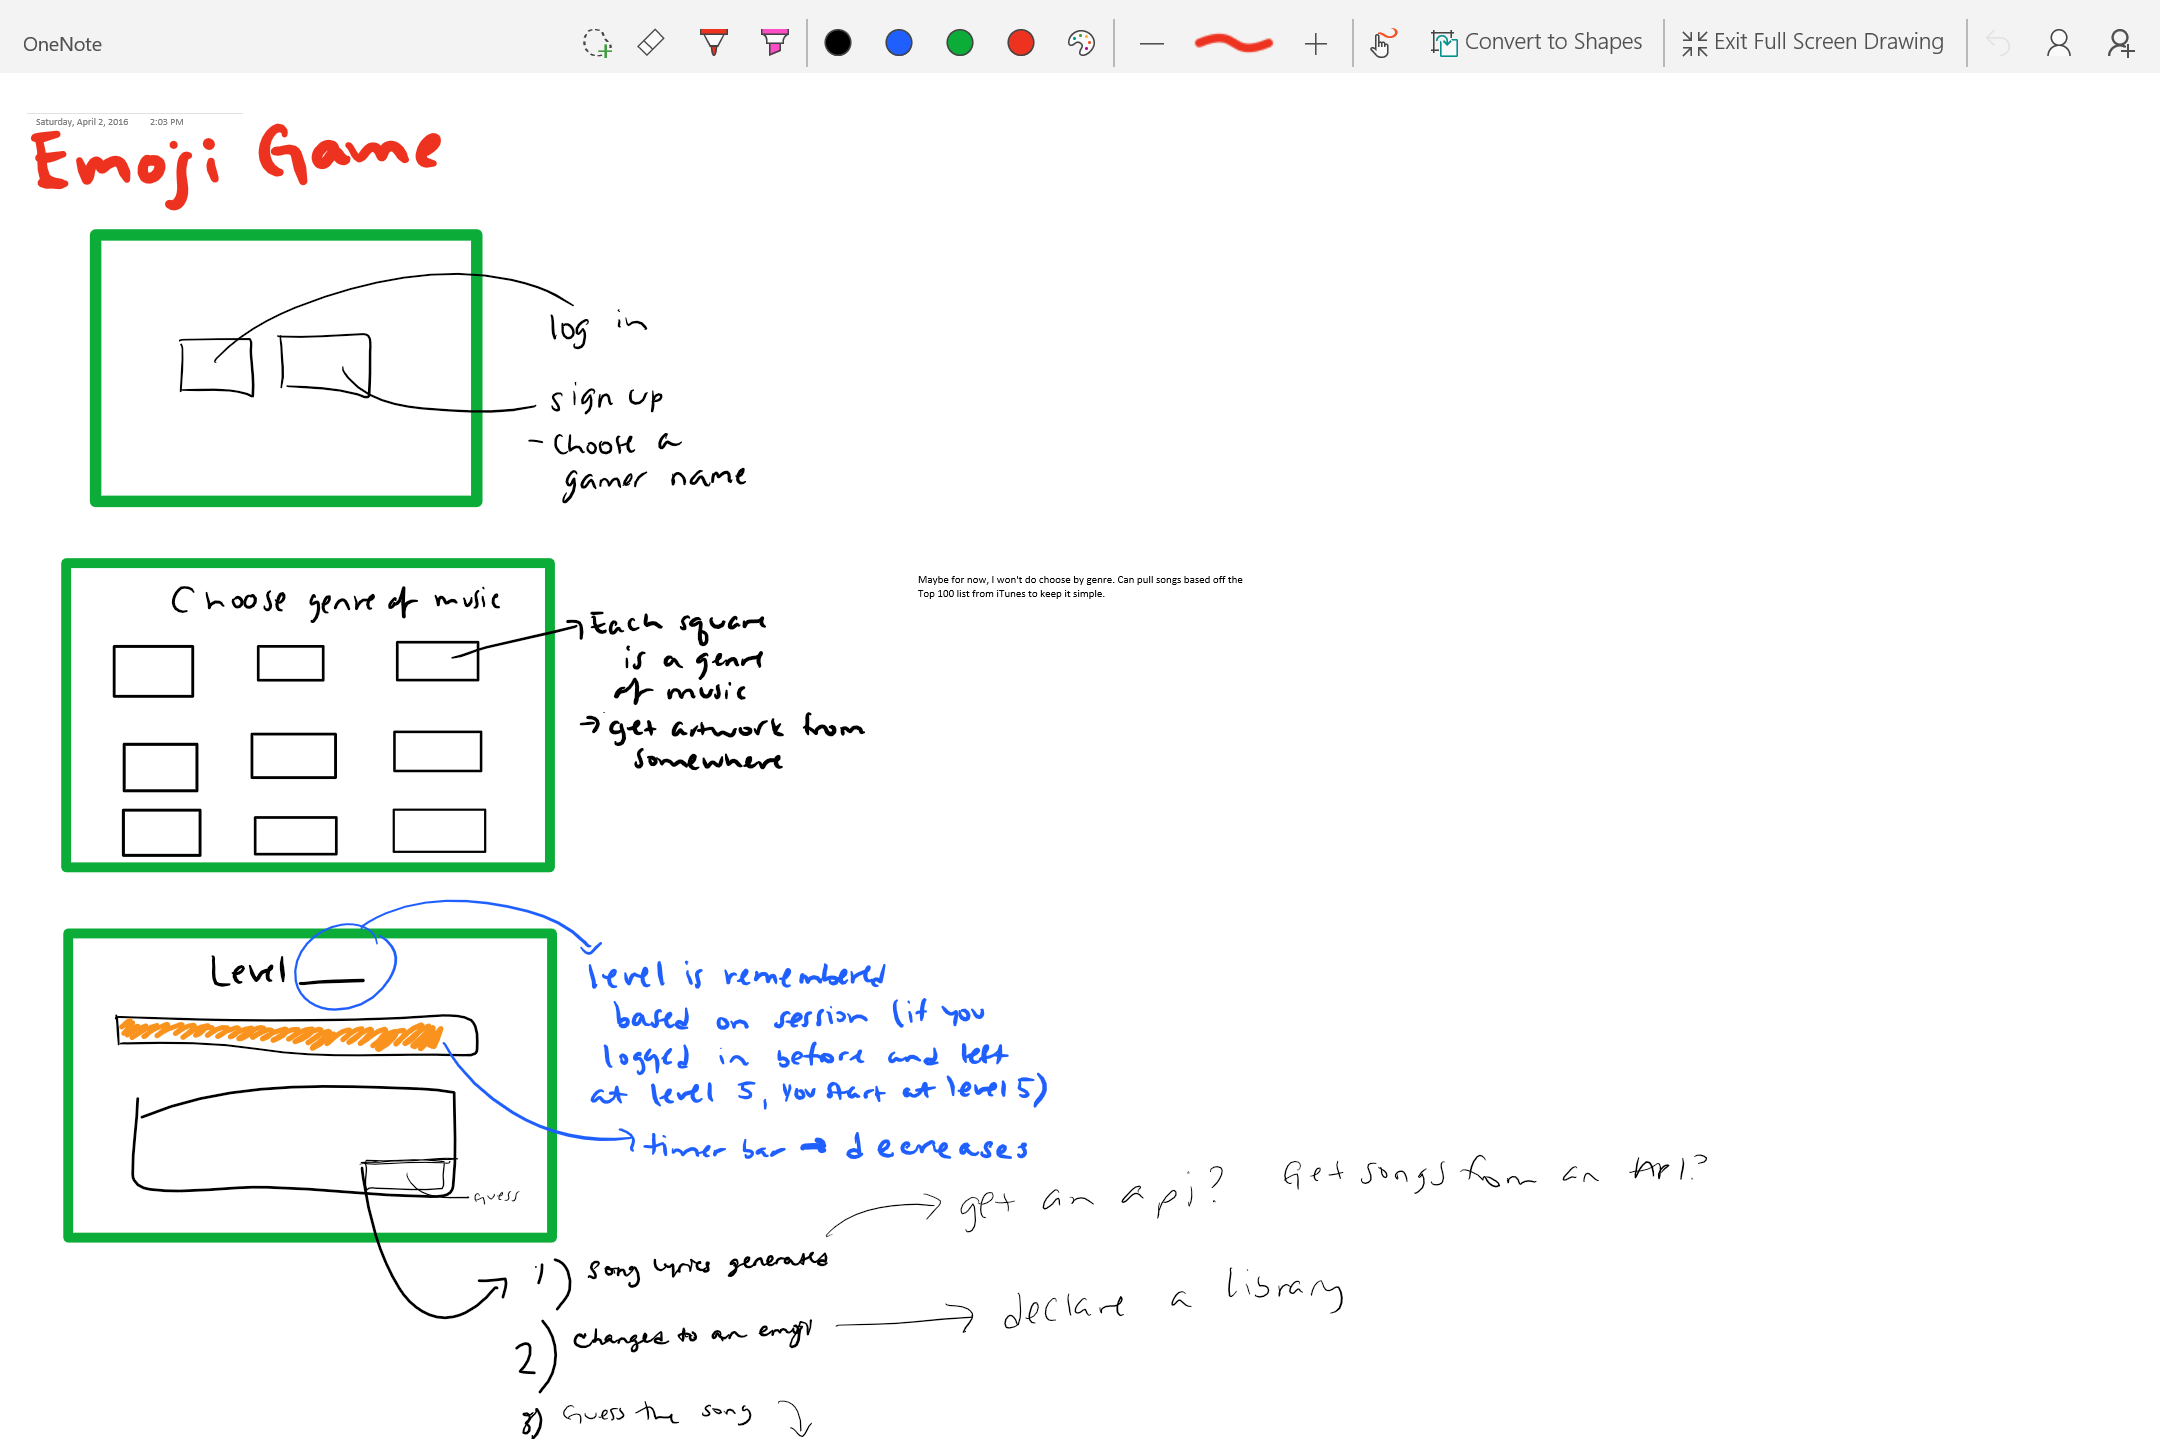 OneNote
Convert to Shapes
Exit Full Screen Drawing
Saturday, April 2, 2016 2:03 PM
Emoji Game
log in
sign up
- choose a
gamer name
Choose genre of music
Each square
is a genre
of music
→ get artwork from
somewhere
Maybe for now, I won't do choose by genre. Can pull songs based off the
Top 100 list from iTunes to keep it simple.
Level ___
level is remembered
based on session (if you
logged in before and left
at level 5, you start at level 5)
timer bar → decreases
guess
1) song lyrics generates
get an api? Get songs from an API?
2) changes to an emoji
declare a library
3) Guess the song